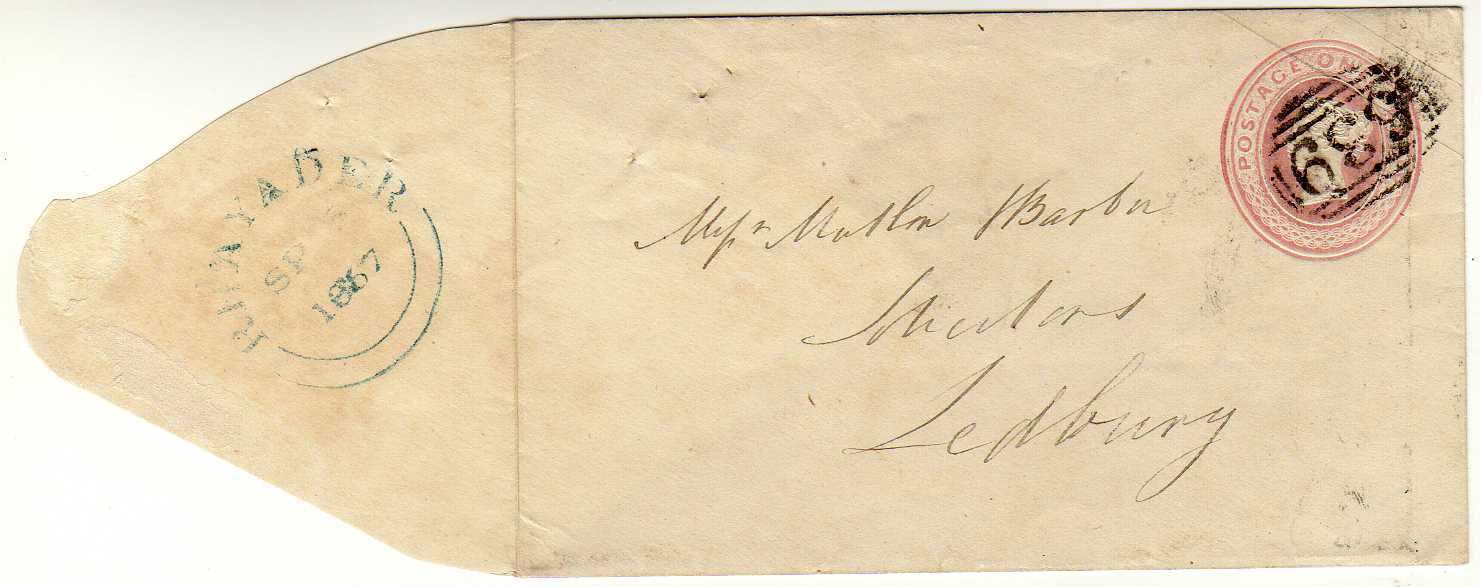 RHAYADER
SP
1857
POSTAGE ON
Messrs Barber
Solicitors
Ledbury